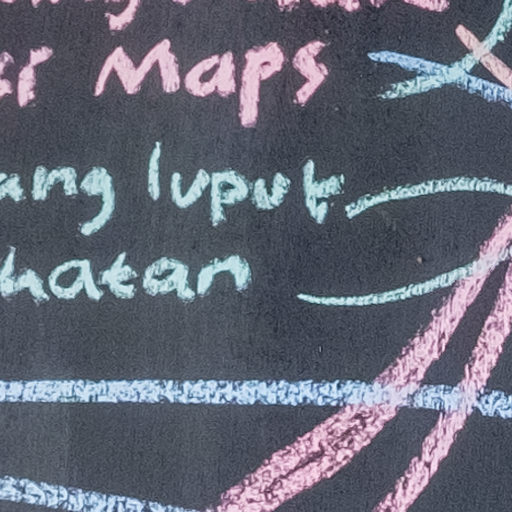 er Maps
ang luput
hatan